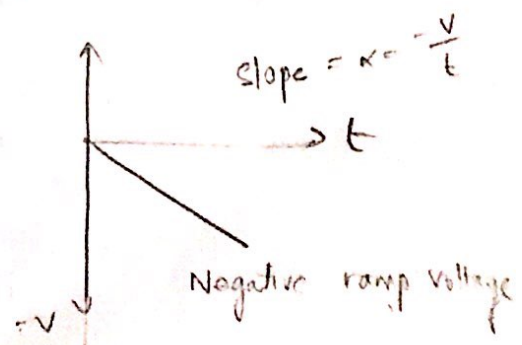 slope = α = -V/t
t
Negative ramp voltage
-V